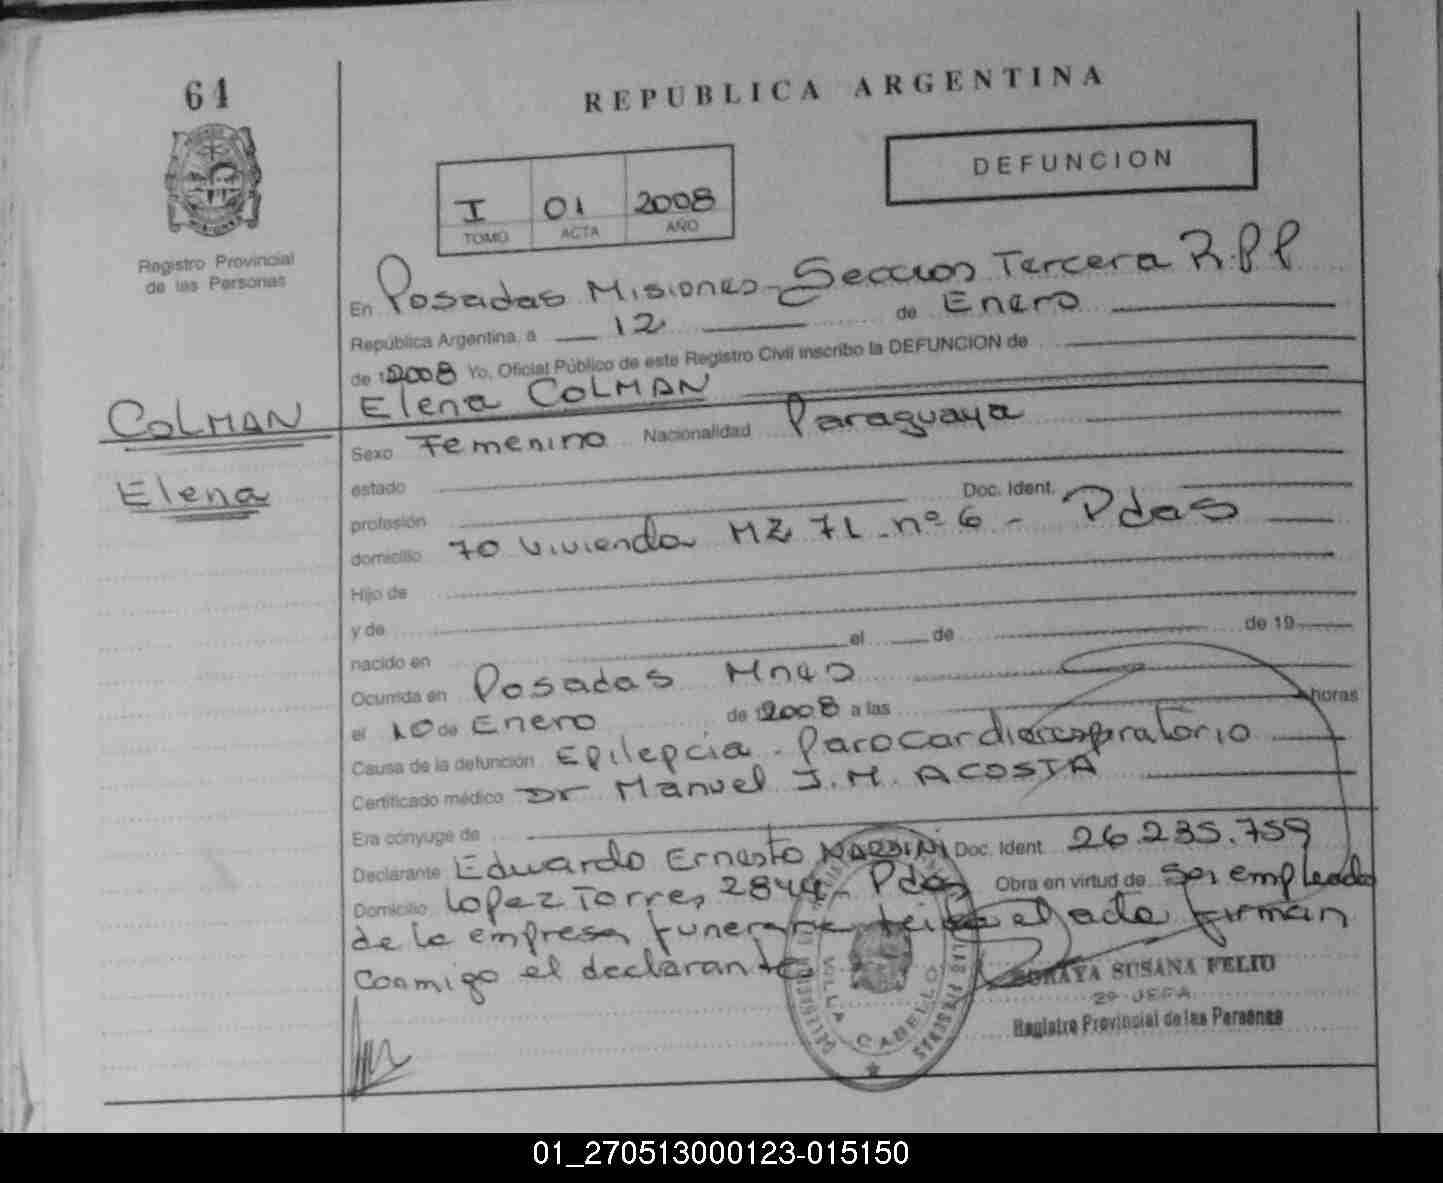 64
REPUBLICA ARGENTINA
DEFUNCION
I 01 2008
TOMO ACTA AÑO
Registro Provincial
de las Personas
En Posadas Misiones - Seccion Tercera R.P.P
República Argentina, a 12 de Enero
de 2008 Yo, Oficial Público de este Registro Civil inscribo la DEFUNCION de
COLMAN
Elena
Elena COLMAN
Sexo Femenino Nacionalidad Paraguaya
estado
profesión Doc. Ident.
domicilio 70 vivienda MZ 7L - nº 6 - Pdas
Hijo de
y de
nacido en el de de 19
Ocurrida en Posadas Mnes
el 10 de Enero de 2008 a las horas
Causa de la defunción Epilepcia - Parocardiorespiratorio
Certificado médico Dr Manuel J.M. ACOSTA
Era cónyuge de
Declarante Eduardo Ernesto NARDINI Doc. Ident. 26.235.759
Domicilio Lopez Torres 2844 - Pdas Obra en virtud de ser empleado
de la empresa funeraria leida el acta firman
conmigo el declarante
VILLA CABELLO
SORAYA SUSANA FELIU
2º JEFA
Registro Provincial de las Personas
01_270513000123-015150